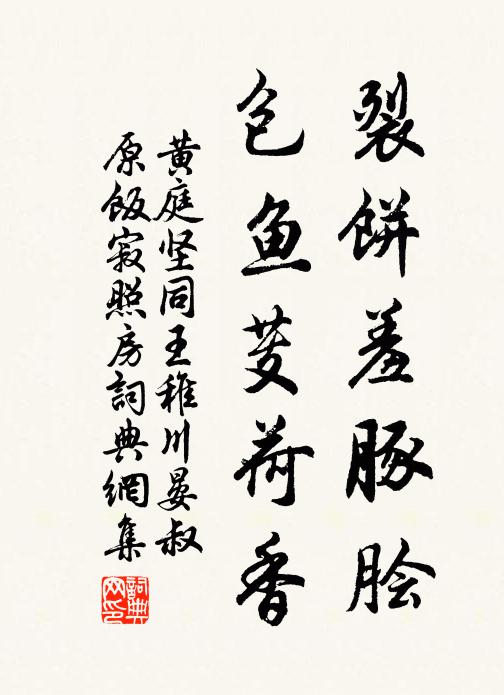 裂餅羞豚脍
包鱼芰荷香
黄庭坚同王稚川晏叔
原飯寂照房詞典網集
詞典网印